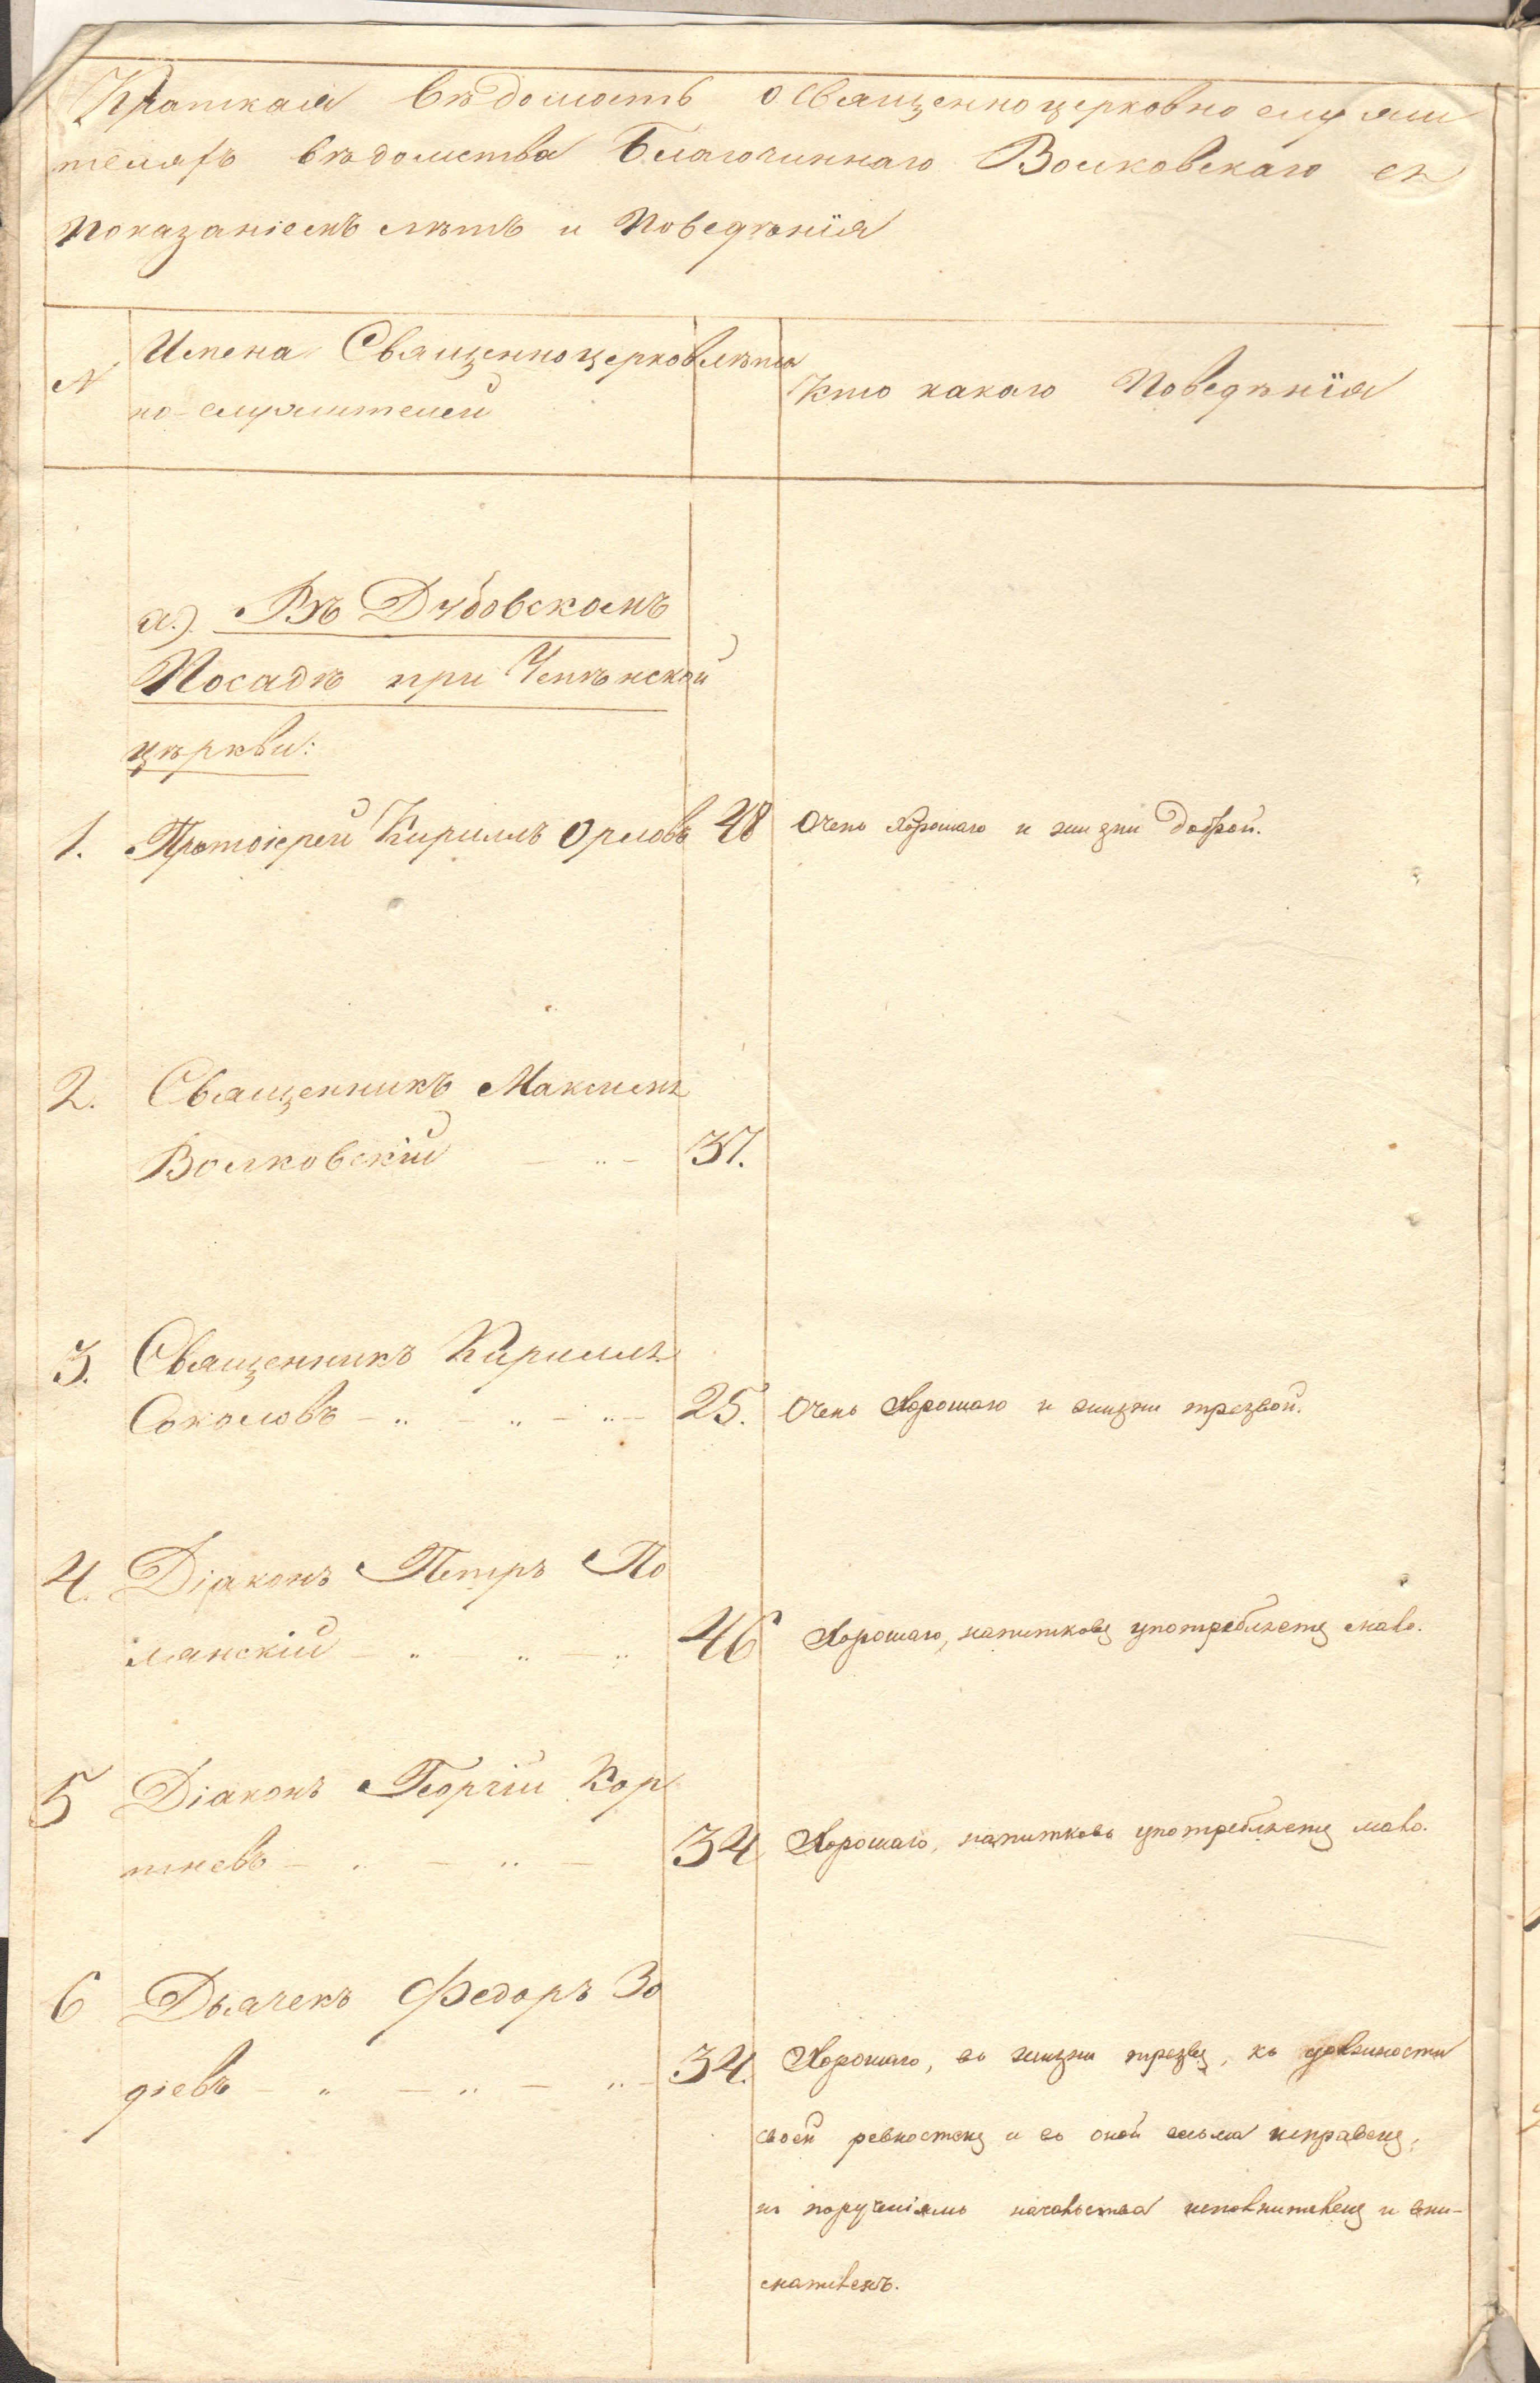 Краткая вѣдомость о Священноцерковнослужи
теляхъ вѣдомства Благочиннаго Волковскаго съ
показаніемъ лѣтъ и Поведѣнія
N
Имена Священноцерков
но-служителей
лѣта
Кто какого Поведѣнія
а.) Въ Дубовскомъ
Посадѣ при
цѣркви:
1. Протоіерей Кириллъ Орловъ 48 Очень хорошаго и жизни доброй.
2. Священникъ Максимъ
Волковскій 37.
3. Священникъ Кириллъ
Соколовъ 25. Очень хорошаго и жизни трезвой.
4. Діаконъ Петръ По
лянскій 46 Хорошаго, напитковъ употребляетъ мало.
5 Діаконъ Георгій Кор
тневъ 34 Хорошаго, напитковъ употребляетъ мало.
6 Дьячекъ Федоръ Зо
діевъ 34. Хорошаго, въ жизни трезвъ, къ должности
своей ревностенъ и въ оной весьма исправенъ,
къ порученіямъ начальства исполнителенъ и вни-
мателенъ.